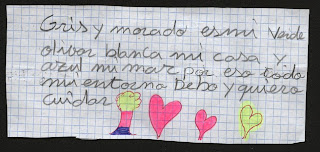 Gris y morado es mi verde
olivar blanca mi casa y
azul mi mar por eso todo
mi entorno Debo y quiero
cuidar